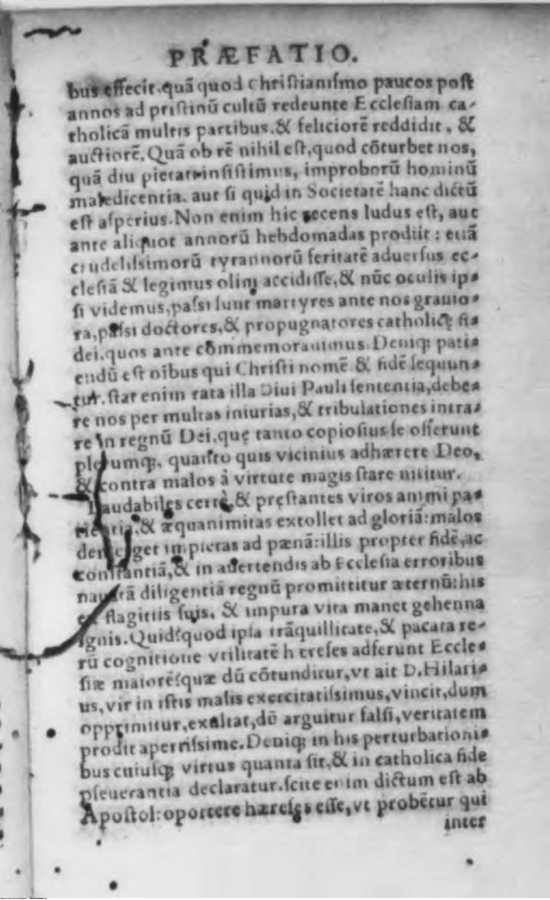 PRÆFATIO.
bus effecit, quã quod Christianismo paucos post
annos ad pristinũ cultũ redeunte Ecclesiam ca-
tholicã multis partibus, & feliciorẽ reddidit, &
auctiorẽ. Quã ob rẽ nihil est, quod cõturbet nos,
quã diu pietati insistimus, improborũ hominũ
maledicentia, aut si quid in Societatẽ hanc dictũ
est asperius. Non enim hic recens ludus est, aut
ante aliquot annorũ hebdomadas prodiit: etiã
crudelissimorũ tyrannorũ feritatẽ aduersus ec-
clesiã & legimus olim accidisse, & nũc oculis ip-
si videmus, passi sunt martyres ante nos grauio-
ra, passi doctores, & propugnatores catholicę fi-
dei, quos ante commemorauimus. Deniq; pati-
endũ est oĩbus qui Christi nomẽ & fidẽ sequun-
tur. stat enim rata illa Diui Pauli sententia, debe-
re nos per multas iniurias, & tribulationes intra-
re in regnũ Dei, quę tanto copiosius se offerunt
plerumq;, quanto quis vicinius adhærere Deo,
& contra malos à virtute magis stare nititur.
Laudabiles certè, & pręstantes viros animi pa-
tiẽtiã, & æquanimitas extollet ad gloriã: malos
deterget impietas ad pænã: illis propter fidẽ, ac
constantiã, & in auertendis ab Ecclesia erroribus
nauatã diligentiã regnũ promittitur æternũ: his
ex flagitiis suis, & impura vita manet gehenna
ignis. Quid? quod ipsa trãquillitatẽ, & pacata re-
rũ cognitione vtilitatẽ hæreses adferunt Eccle-
siæ maiorẽ? quæ dũ cõtunditur, vt ait D. Hilari-
us, vir in istis malis exercitatissimus, vincit, dum
opprimitur, exultat, dũ arguitur falsi, veritatem
prodit apertissime. Deniq; in his perturbationi-
bus cuiusq; virtus quanta sit, & in catholica fide
pseuerantia declaratur. scite enim dictum est ab
Apostol: oportere hæreses esse, vt probẽtur qui
inter